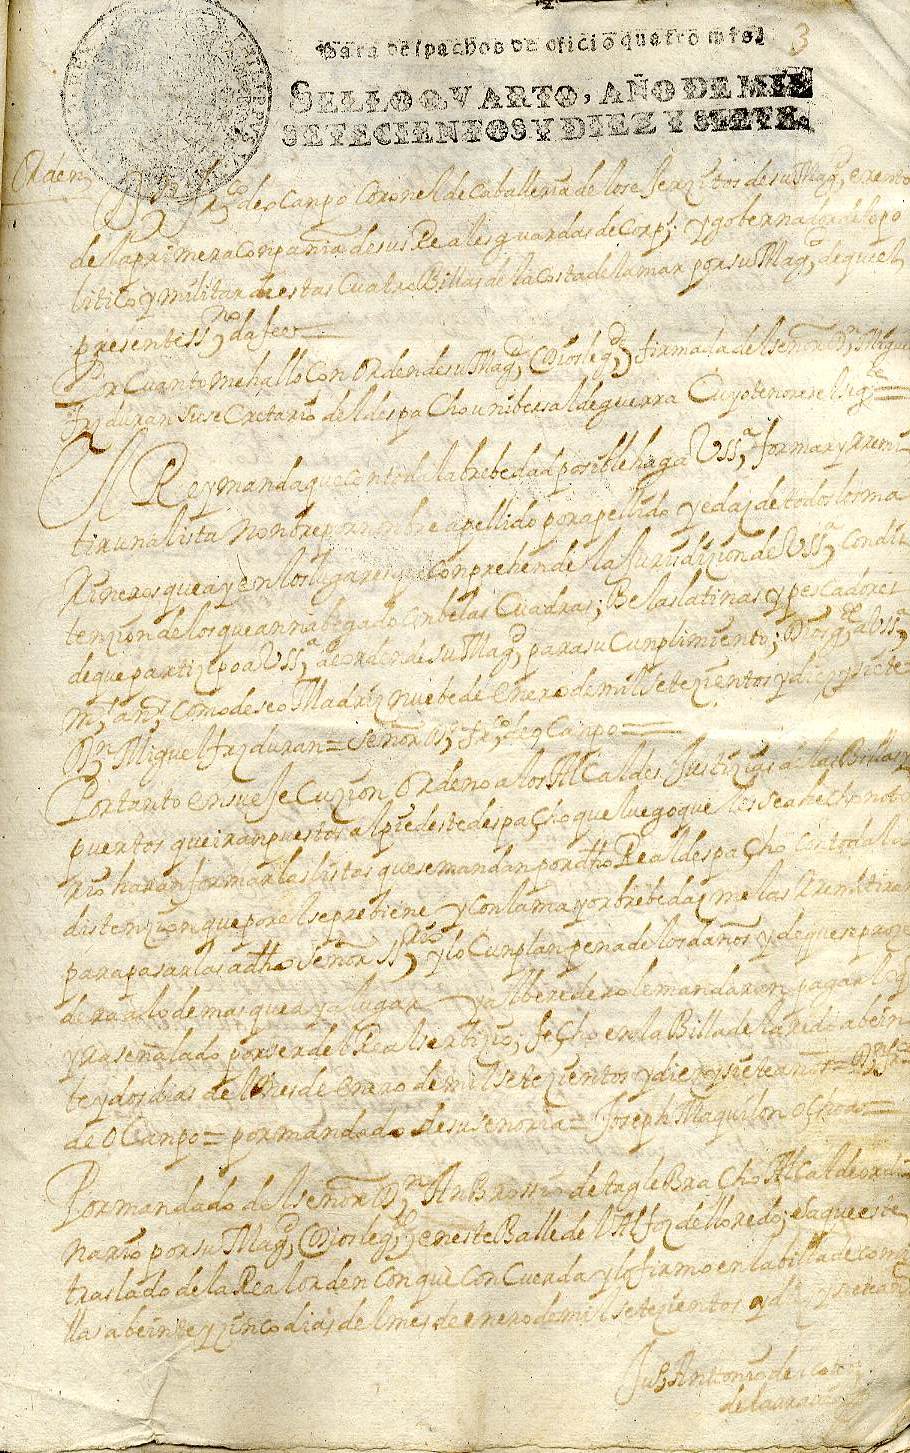 Para despachos de oficio quatro mrs.
3
SELLO QVARTO, AÑO DE MIL
SETECIENTOS Y DIEZ Y SIETE.
Orden
de Ocanpo Coronel de Caballeria de los exerzitos de su Magd, exento
de la primera Conpañia de sus Reales guardas de Corps; y gobernador de lo po
litico y militar destas Cuatro Billas de la Costa de la mar por su Magd, de que el
presente ssno, da fee
Por Cuanto me hallo Con Orden de su Magd, (Dios le gde,) firmada del señor Dn, Miguel
frz duran su secretario del despacho unibersal de guerra Cuyo tenor es el sigte =
El Rey manda que Con toda la brebedad posible haga Vssa, formar y rremi
tir una lista nonbre por nonbre apellido por apellido y edaz de todos los ma
rineros que ay en los lugares que Conprehende la Jurisdizion de Vssa, Con dis
tenzion de los que an nabegado en belas Cuadras; Belas latinas y pescadores
de que partizipo a Vssa, de orden de su Magd, para su Cunplimiento; Dios ge a Vssa,
ms, ans, Como deseo Madriz nuebe de Enero de mill setezientos y diez y siete
Dn, Miguel frz duran = señor Dn,
Por tanto en su ejeCuzion Ordeno a los Alcaldes Justizias de las Billas y
puertos que iran puestos al pie deste despacho que luego que les sea hecho noto
rio haran formar las listas que se mandan por dho Real despacho Con toda la
distenzion que por el se prebiene y con la mayor brebedaz me las Remitiran
para pasarlas a dho señor ssrio, y lo Cunplan pena de los daños y de que se proze
dera a lo demas que aya lugar y al beredero le mandaran pagar lo q
ba señalado por ser del Real serbizio; fecho en la Billa de laredo a bein
te y dos dias del mes de Enero de mil setezientos y diez y siete años =
de OCanpo = por mandado de su señoria = Joseph Maquilon ochoa =
Por mandado del señor Dn, AnBrossio de tagle BraCho Alcalde ordi
nario por su Magd, (Dios le gde,) en este Balle del Alfoz de lloredo; saque este
traslado de la Real orden Con que ConCuerda y lo firmo en la billa de comi
llas a beinte y zinco dias del mes de enero de mil setezientos y diez y siete años
Juo, Antonio de
de la